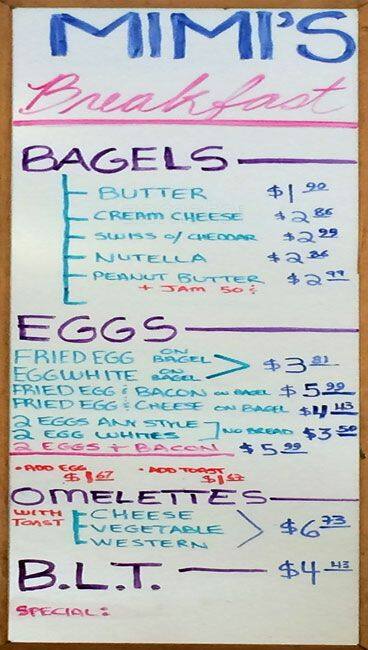 MIMI'S
Breakfast
BAGELS
BUTTER $1 90
CREAM CHEESE $2 86
SWISS o/ CHEDDAR $2 99
NUTELLA $2 86
PEANUT BUTTER $2 99
+ JAM 50¢
EGGS
FRIED EGG ON BAGEL
EGGWHITE ON BAGEL $3 81
FRIED EGG & BACON ON BAGEL $5 99
FRIED EGG & CHEESE ON BAGEL $4 43
2 EGGS ANY STYLE
2 EGG WHITES NO BREAD $3 50
2 EGGS + BACON $5 99
• ADD EGG • ADD TOAST
$1 67 $1
OMELETTES
WITH TOAST
CHEESE
VEGETABLE $6 73
WESTERN
B.L.T. $4 43
SPECIAL: